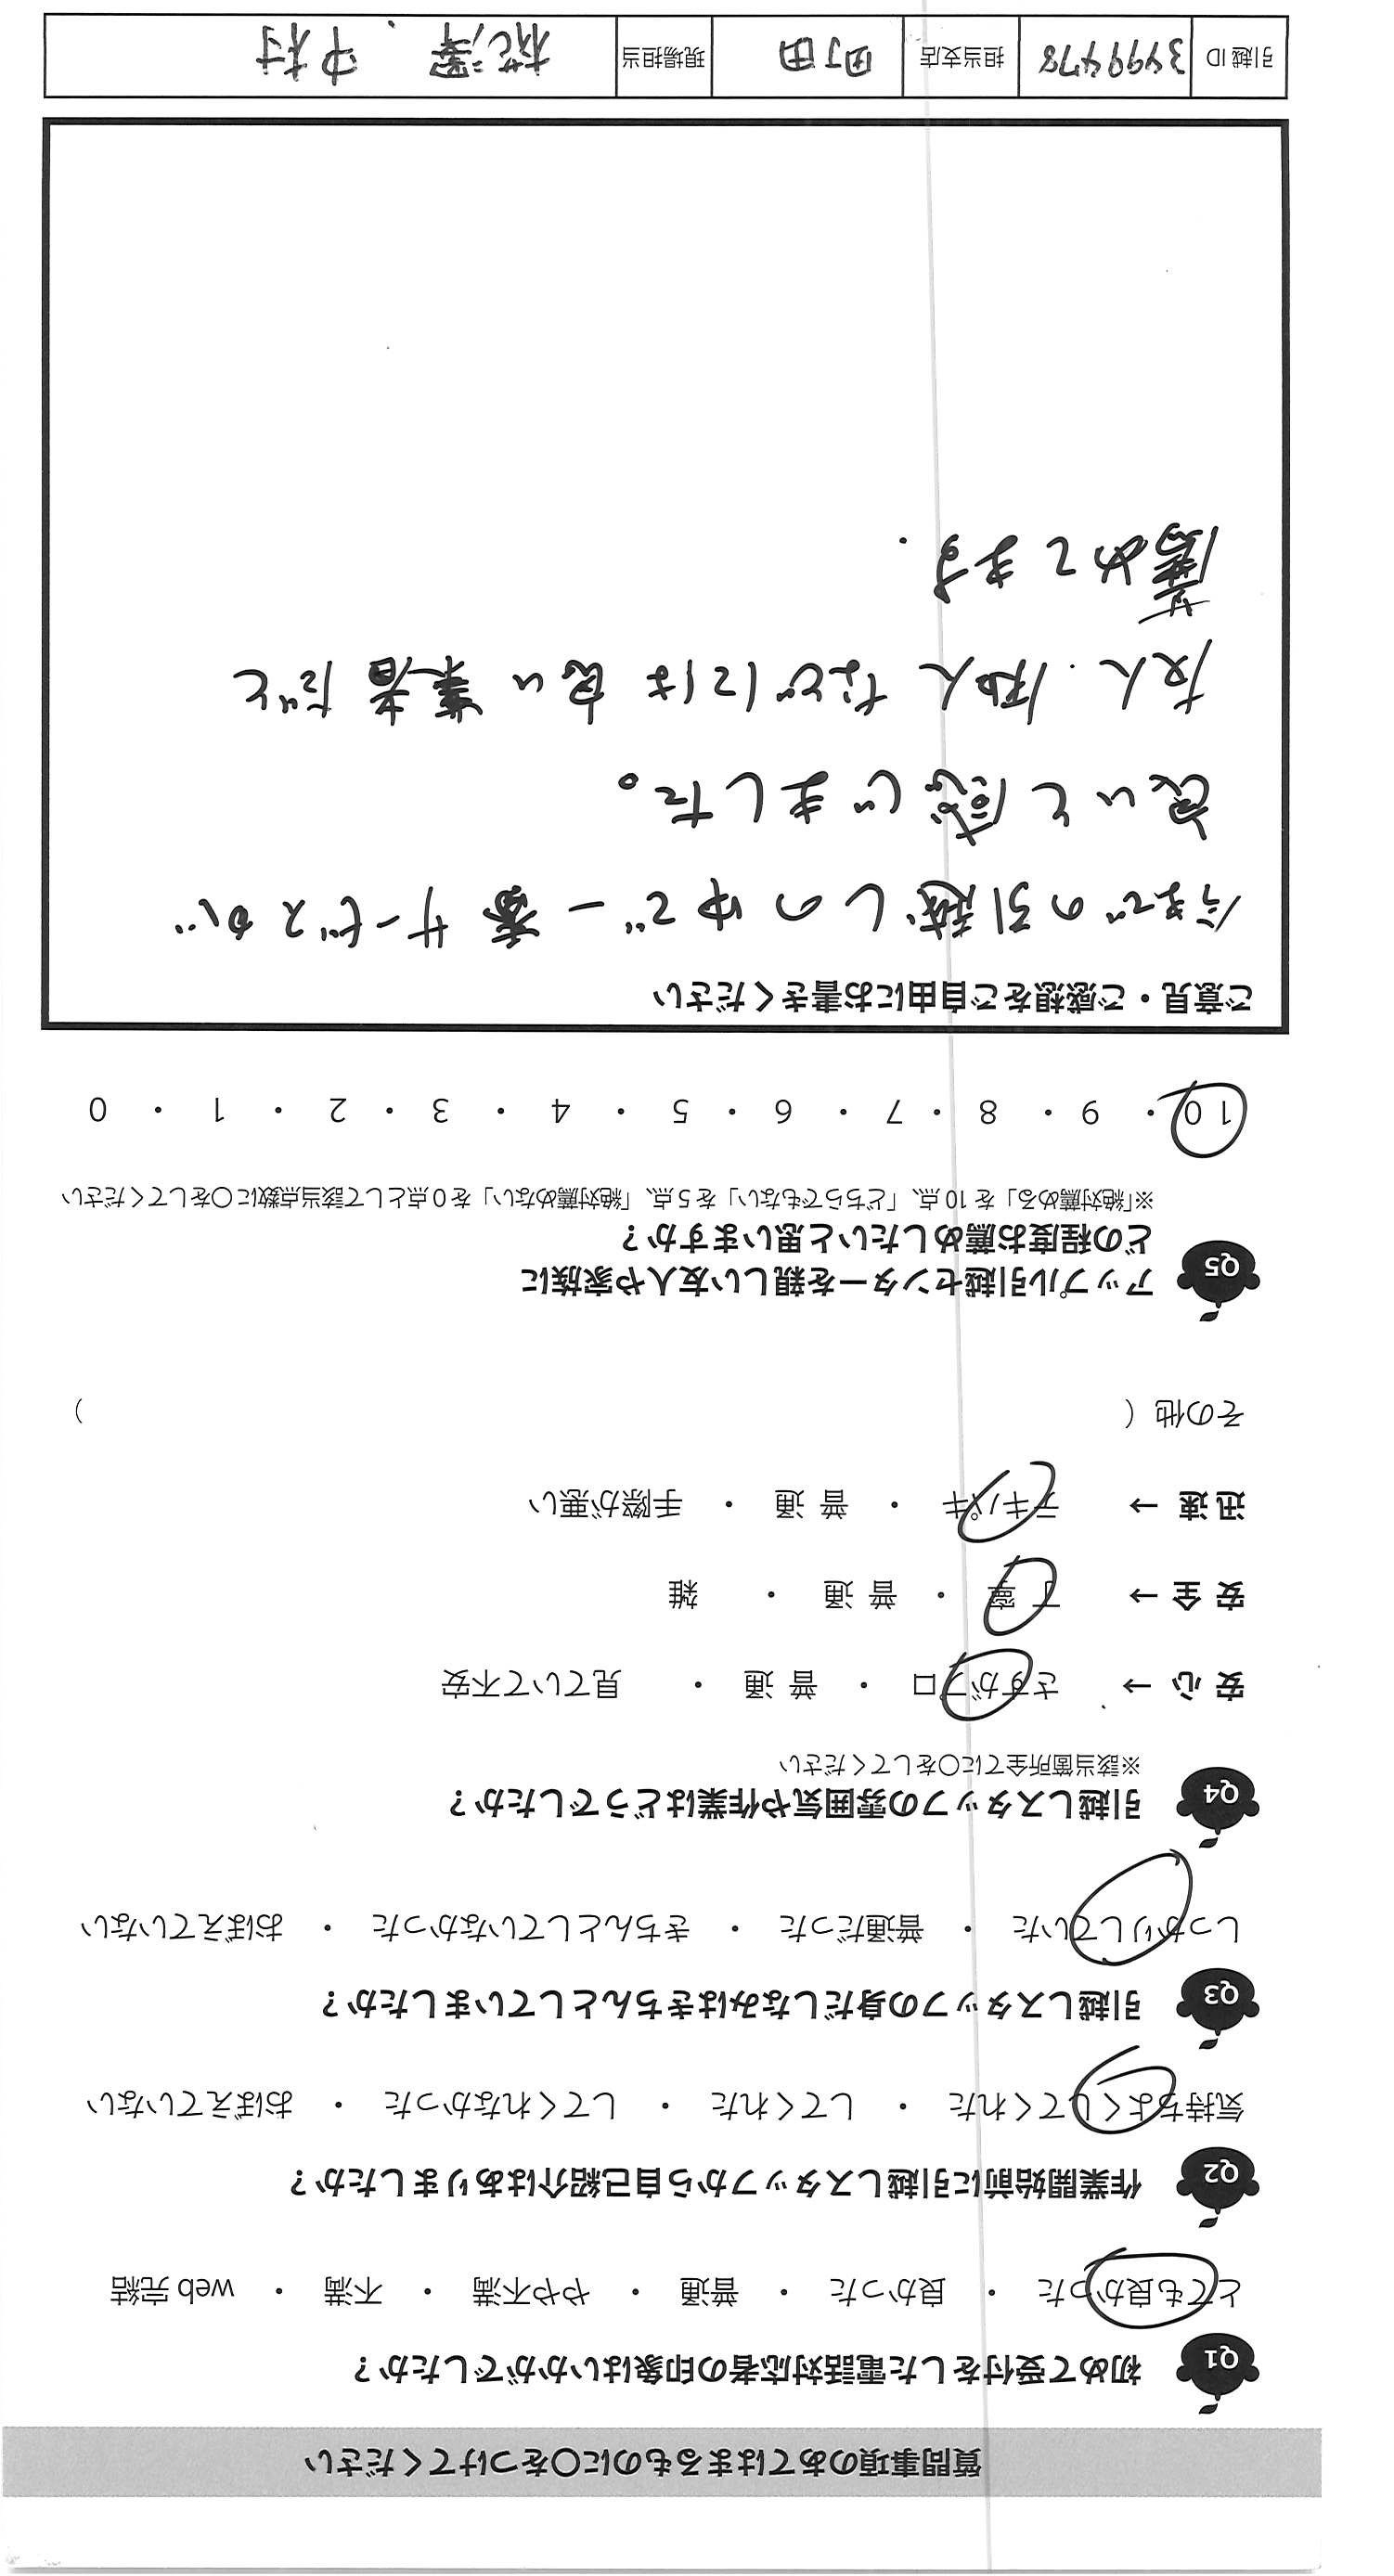 質問事項のあてはまるものに〇をつけてください
Q1 初めて受付をした電話対応者の印象はいかがでしたか？
とても良かった ・ 良かった ・ 普通 ・ やや不満 ・ 不満 ・ web 完結
Q2 作業開始前に引越しスタッフから自己紹介はありましたか？
気持ちよくしてくれた ・ してくれた ・ してくれなかった ・ おぼえていない
Q3 引越しスタッフの身だしなみはきちんとしていましたか？
しっかりしていた ・ 普通だった ・ きちんとしていなかった ・ おぼえていない
Q4 引越しスタッフの雰囲気や作業はどうでしたか？
※該当箇所全てに〇をしてください
安 心 → さすがプロ ・ 普 通 ・ 見ていて不安
安 全 → 丁 寧 ・ 普 通 ・ 雑
迅 速 → テキパキ ・ 普 通 ・ 手際が悪い
その他（ ）
Q5 アップル引越センターを親しい友人や家族に
どの程度お薦めしたいと思いますか？
※「絶対薦める」を 10 点、「どちらでもない」を 5 点、「絶対薦めない」を 0 点として該当点数に〇をしてください
10 ・ 9 ・ 8 ・ 7 ・ 6 ・ 5 ・ 4 ・ 3 ・ 2 ・ 1 ・ 0
ご意見・ご感想をご自由にお書きください
今までの引越しの中で一番サービスが
良いと感じました。
友人.知人などには良い業者だと
薦めてます.
引越 ID 3499478 担当支店 町田 現場担当 梳澤 . 中村